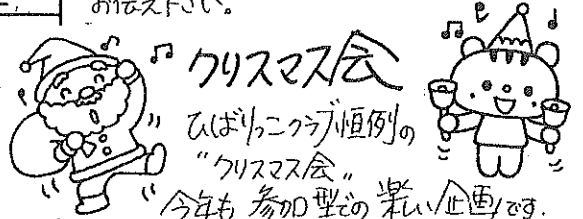 お伝え下さい。
クリスマス会
ひばりっこクラブ恒例の
"クリスマス会"
今年も参加型での楽しい企画です。